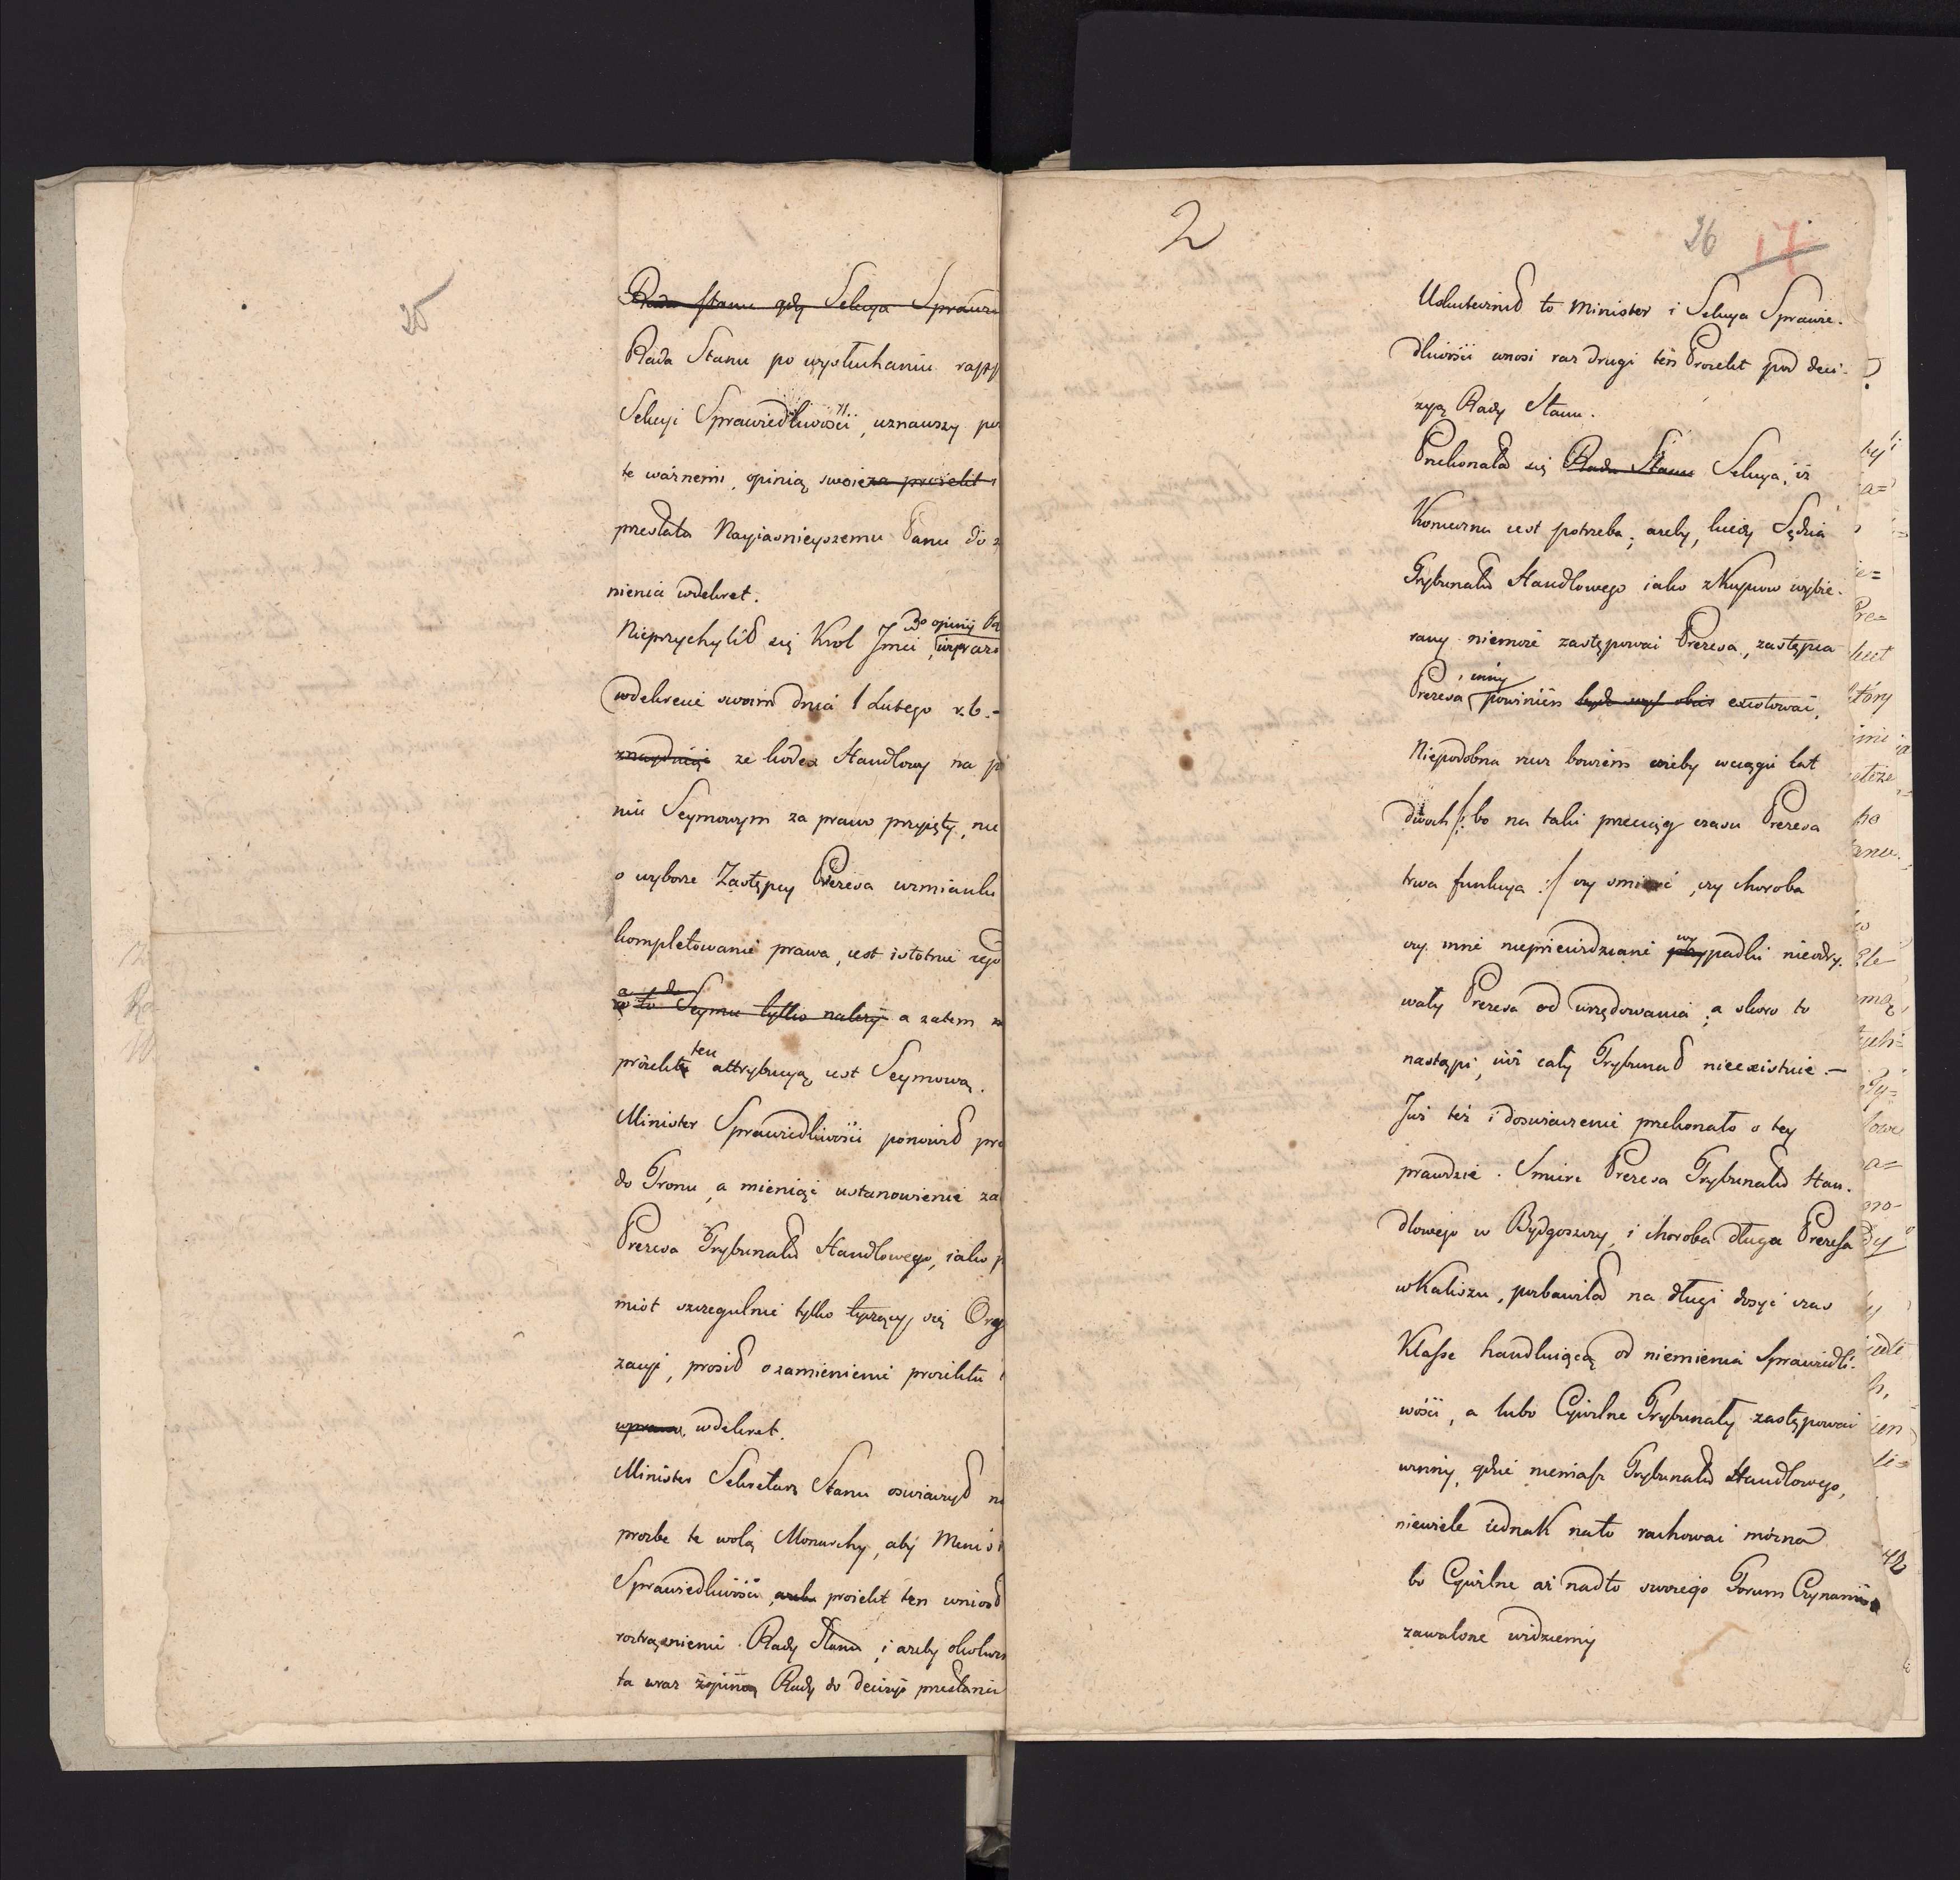 25
Rada Stanu gdy Sekcya Sprawie
Rada Stanu po wysłuchaniu rapp
Sekcyi Sprawiedliwości, uznawszy po
te ważnemi, opinią swoię za proiekt
przesłała Nayiasnieyszemu Panu do z
nienia wdekret.
do opinij Ra
Nieprzychylił się Krol Jmci, wyraz
wdekrecie swoim dnia 1 Lutego r. b. -
znayduiąc ze kodex Handlowy na p
niu Seymowym za prawo przyięty, nie
o wyborze Zastępcy Prezesa wzmianku
kompletowanie prawa, iest istotnie iego
a do
to Seymu tylko należy a zatem
ten
proiekt attrybucyą iest Seymową.
Minister Sprawiedliwości ponowił pro
do Tronu, a mieniąc ustanowienie za
Prezesa Trybunału Handlowego, iako p
miot szczegulnie tylko tyczący się Org
zacyi, prosił o zamienienie proiektu
wprawo, wdekret.
Minister Sekretarz Stanu oswiadczył n
prozbe te wolą Monarchy, aby Minis
Sprawiedliwości, proiekt ten wniosł
roztrząsnienie Rady Stanu, i azeby okolicz
ta wraz zopinią Rady do decyzyi przesłania
2
26 17
Uskutecznił to Minister i Sekcya Sprawie-
dliwości wnosi raz drugi ten Proiekt pod decy-
zyą Rady Stanu.
?
Przekonała się Rada Stanu Sekcya, iż
Konieczna iest potrzeba, azeby, kiedy Sędzia
Trybunału Handlowego iako z Kupcow wybie-
rany niemoże zastępować Prezesa, zastępca
inny
Prezesa powinien exystować,
Niepodobna rzecz bowiem azeby wciągu lat
dwoch /: bo na taki przeciąg czasu Prezesa
trwa funkcya :/ czy smierć, czy choroba
wy
czy inne nieprzewidziane przypadki nieodry-
wały Prezesa od urzędowania; a skoro to
nastąpi, iuż cały Trybunał nieexistuie. —
Już też i doswiadczenie przekonało o tey
prawdzie. Smierć Prezesa Trybunału Han-
dlowego w Bydgoszczy, i choroba długa Prezesa
w Kaliszu, pozbawiła na długi dosyć czas
Klasse handluiącą od niemienia Sprawiedli-
wości, a lubo Cywilne Trybunały zastępować
winny, gdzie niemasz Trybunału Handlowego,
niewiele iednak nato rachować można
bo Cywilne aż nadto swoiego Forum Czynami
zawalone widziemy